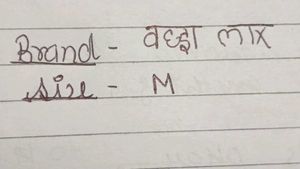 Brand - वध्डा लार
Size - M